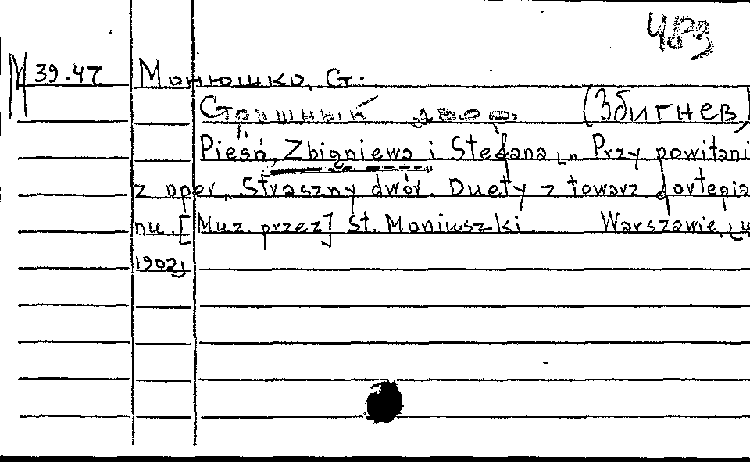 483
М 39.47 Монюшко, С.
Страшный двор. (Збигнев)
Pieśń Zbigniewa i Stefana „Przy powitani
z oper. Straszny dwór. Duety z towarz fortepia
nu. [Muz. przez] St. Moniuszki Warszawie, u
1902]